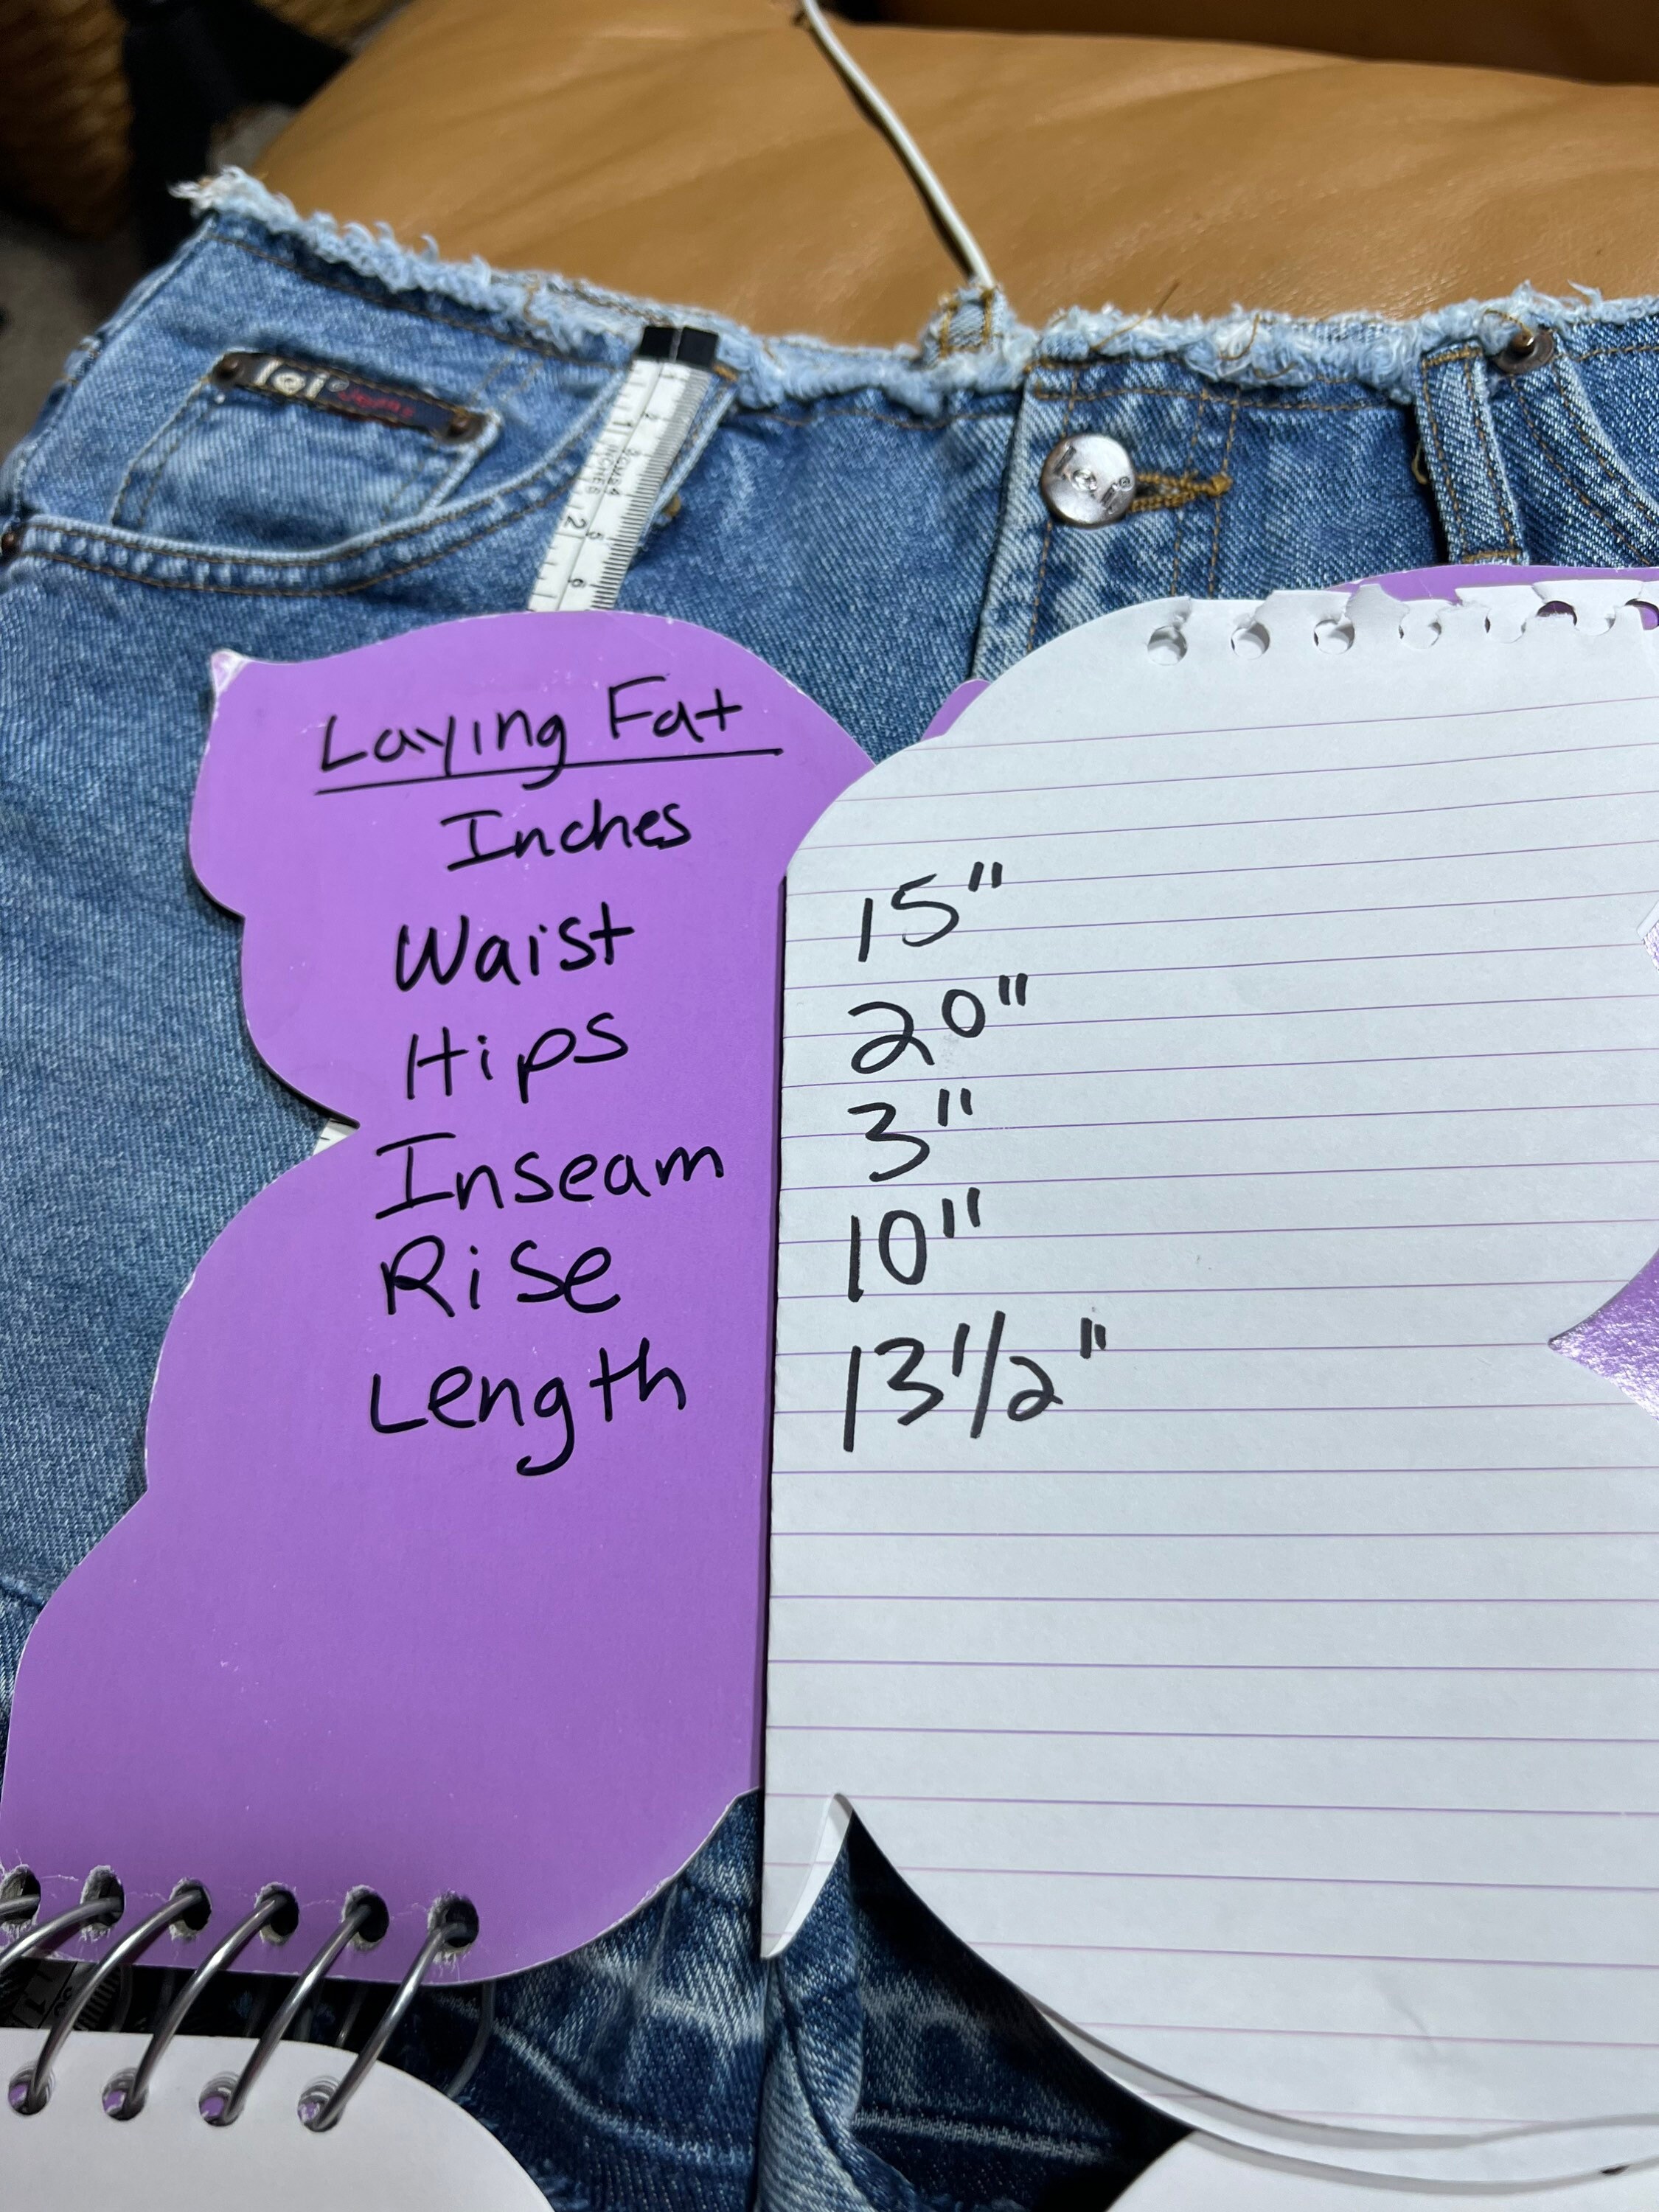 l.e.i.® Jeans
1
2
3
INCHES
CM 4
2
5
6
l.e.i.®
Laying Fat
Inches
Waist 15"
Hips 20"
Inseam 3"
Rise 10"
Length 13 1/2"